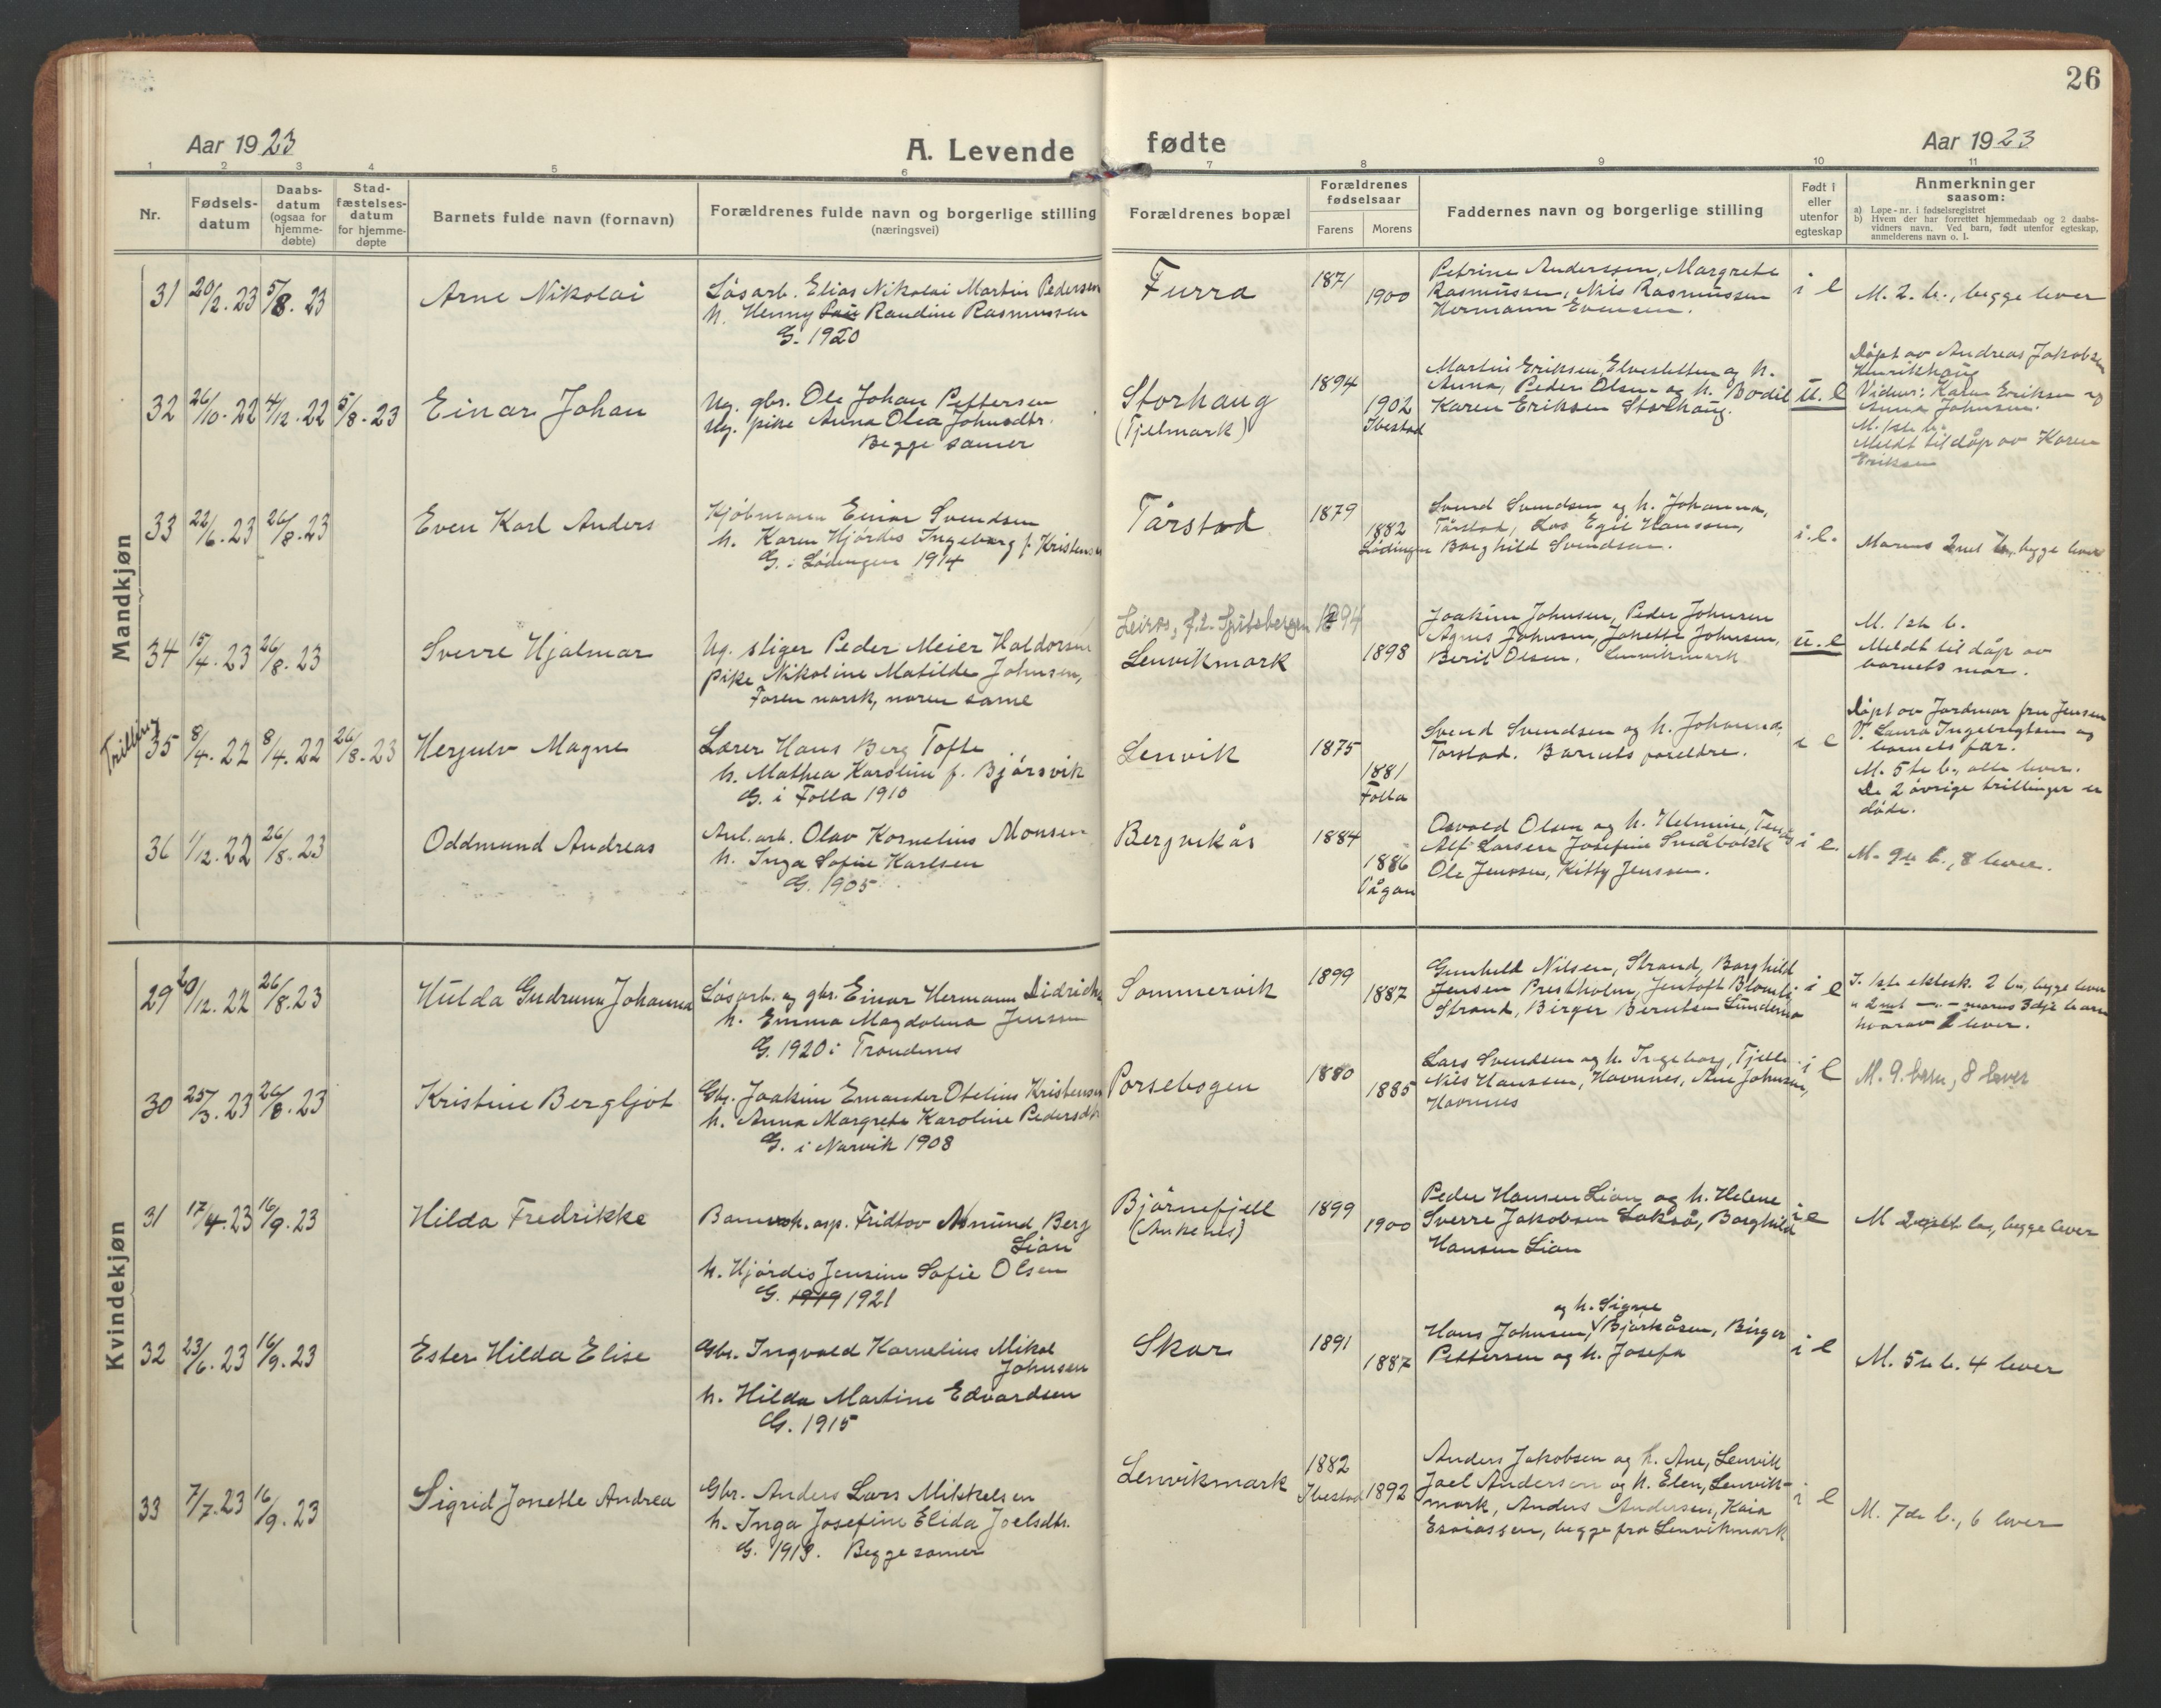 26
Aar 1923
A. Levende fødte
Aar 1923
1 2 3 4 5 6 7 8 9 10 11
Nr.
Fødsels-
datum
Daabs-
datum
(ogsaa for
hjemme-
døbte)
Stad-
fæstelses-
datum
for hjemme-
døpte
Barnets fulde navn (fornavn)
Forældrenes fulde navn og borgerlige stilling
(næringsvei)
Forældrenes bopæl
Forældrenes
fødselsaar
Farens Morens
Faddernes navn og borgerlige stilling
Født i
eller
utenfor
egteskap
Anmerkninger
saasom:
a) Løpe-nr. i fødselsregistret
b) Hvem der har forrettet hjemmedaab og 2 daabs-
vidners navn. Ved barn, født utenfor egteskap,
anmelderens navn o. l.
Mandkjøn
31 20/2. 23 5/8. 23
Arne Nikolai
Løsarb. Elias Nikolai Martin Pedersen
h. Henny Raudine Rasmussen
G. 1920
Furra
1871
1900
Petrine Anderssen, Margrete
Rasmussen, Nils Rasmussen
Hermann Evensen.
i e
M. 2. b., begge lever
32 26/10. 22 4/12. 22 5/8. 23
Einar Johan
Ug. gbr. Ole Johan Pettersen
Ug. pike Anna Olea Johnsdtr.
Begge samer
Storhaug
(Tjelmark)
1894
1902
Ibestad
Martin Eriksen, Elvesletten og h.
Anna, Peder Olsen og h. Bodil
Karen Eriksen Storhaug.
u. e
Døpt av Andreas Jakobsen
Henrikhaug
Vidner: Karen Eriksen og
Anna Johnsen.
M. 1ste b.
Meldt til dåp av Karen
Eriksen
33 22/6. 23 26/8. 23
Even Karl Anders
Kjøbmann Einar Svendsen
h. Karen Hjørdis Ingeborg f. Kristensen
G. i Lødingen 1914
Tårstad
1879
1882
Lødingen
Svend Svendsen og h. Johanna,
Tårstad, Egil Hansen,
Borghild Svendsen.
i. e.
Morens 2net b., begge lever
34 15/4. 23 26/8. 23
Sverre Hjalmar
Ug. stiger Peder Meier Haldorsen
pike Nikoline Matilde Johnsen,
Faren norsk, moren same
Leiros, f. t. Spitsbergen
Lenvikmark
1894
1898
Joakim Johnsen, Peder Johnsen
Agnes Johnsen, Jonette Johnsen,
Beril Olsen. Lenvikmark
u. e
M. 1ste b.
Meldt til dåp av
barnets mor.
Trilling
35 8/4. 22 8/4. 22 26/8. 23
Hergulv Magne
Lærer Hans Berg Tofte
h. Mathea Karoline f. Bjørsvik
G. i Folla 1910
Lenvik
1875
1881
Folla
Svend Svendsen og h. Johanna,
Tårstad. Barnets foreldre.
i e
Døpt av Jordmor fru Jensen
V. Laura Ingebrigtsen og
barnets far.
M. 5te b., alle lever.
De 2 øvrige trillinger er
døde.
36 1/12. 22 26/8. 23
Oddmund Andreas
Anl. arb. Olav Kornelius Monsen
h. Inga Sofie Karlsen
G. 1905
Bergvikås
1884
1886
Osvald Olsen og h. Helmine,
Alf Larsen Josefine Småbakk
Ole Jenssen, Kitty Jenssen.
i e.
M. 9de b., 8 lever.
Kvindekjøn
29 20/12. 22 26/8. 23
Hulda Gudrun Johanna
Løsarb. og gbr. Einar Hermann Didriks
h. Emma Magdalena Jensen
G. 1920 i Trondenes
Sommervik
1899
1887
Gunhild Nilsen, Strand, Borghild
Jensen Prestholm, Jentoft Blomli
Strand, Birger Berntsen
i e
I. 1ste ektesk. 2 b., begge lever
" 2net —"— morens 3dje barn
hvorav 2 lever.
30 25/3. 23 26/8. 23
Kristine Bergljot
Gbr. Joakim Emander Otelius Kristensen
h. Anna Margrete Karoline Pedersdtr
G. i Narvik 1908
Porsebogen
1880
1885
Lars Svendsen og h. Ingeborg,
Nils Hanssen, Havnnes, Ane Johnsen,
Havnnes
i e
M. 9. barn, 8 lever
31 17/4. 23 16/9. 23
Hilda Fredrikke
Banevok. asp. Fridtov Amund Berg
Lian
h. Hjørdis Jensine Sofie Olsen
G. 1919 1921
Bjørnefjell
(Ankenes)
1899
1900
Peder Hansen Lian og h. Helene
Sverre Jakobsen Lakså, Borghild
Hansen Lian
i e
M 2net b., begge lever
32 23/6. 23 16/9. 23
Ester Hilda Elise
Gbr. Ingvald Kornelius Mikal
Johnsen
h. Hilda Martine Edvardsen
G. 1915
Skar
1891
1887
og h. Signe
Hans Johnsen, Bjørkåsen, Birger
Pettersen og h. Josefa
i e
M. 5te b. 4 lever
33 7/7. 23 16/9. 23
Sigrid Jonette Andrea
Gbr. Anders Lars Mikkelsen
h. Inga Josefine Elida Joelsdtr.
G. 1913. Begge samer
Lenvikmark
1882
Ibestad
1892
Anders Jakobsen og h. Ane, Lenvik
Joel Andersen og h. Elen, Lenvik-
mark, Anders Andersen, Kaia
Esaiassen, begge fra Lenvikmark
i e
M. 7de b., 6 lever